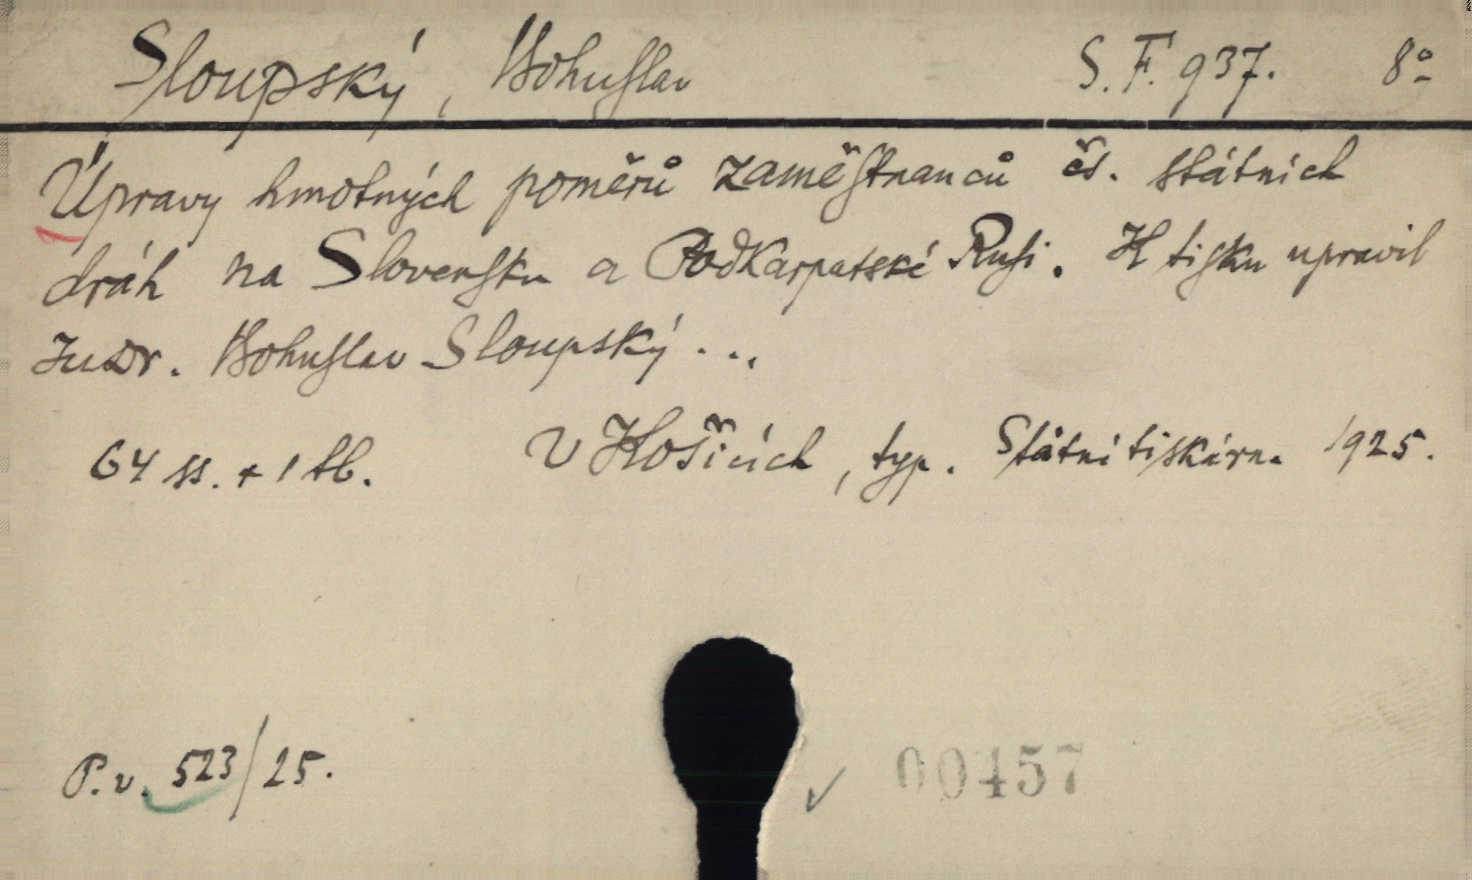 Sloupský, Bohuslav S.F. 937. 8°
Úpravy hmotných poměrů zaměstnanců čs. státních
drah na Slovensku a Podkarpatské Rusi. K tisku upravil
JuDr. Bohuslav Sloupský...
64 ss. + 1 tb. V Košicích, typ. Státní tiskárna 1925.
P.v. 523/25.
00457